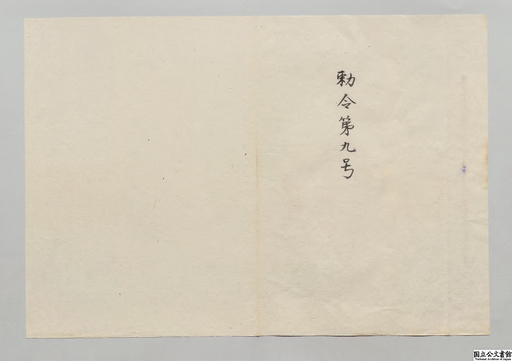 勅令第九号
国立公文書館
National Archives of Japan